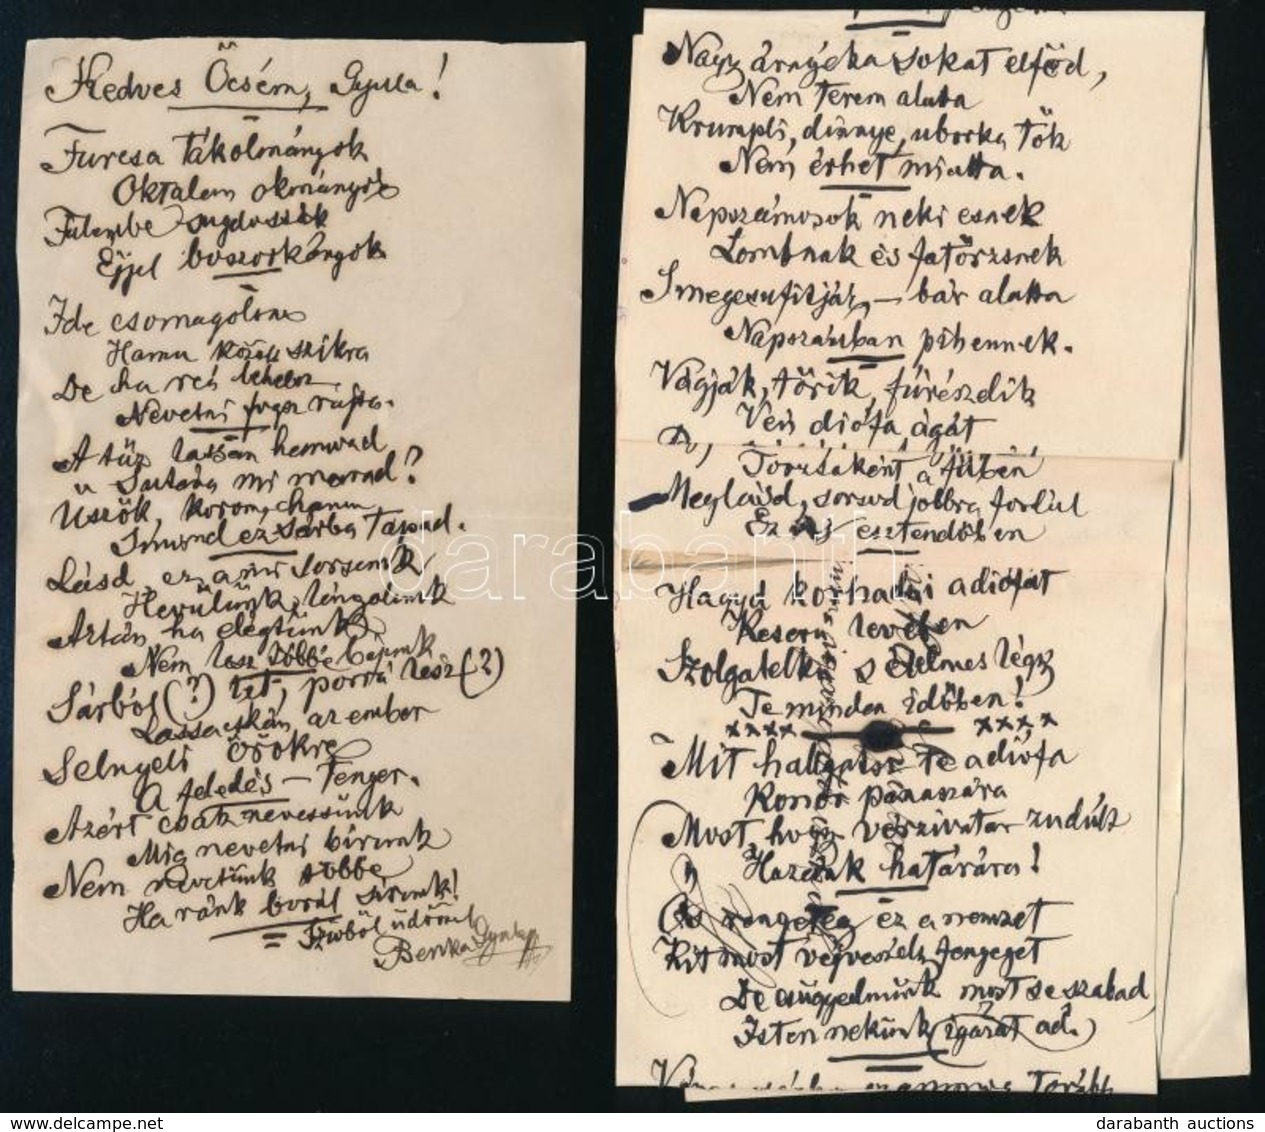 Kedves Öcsém, Gyula!
Furcsa tákolmányok
Oktalan okmányok
Fülembe sugdossák
Éjjel boszorkányok
Ide csomagolva
Hamu közt szikra
De ha reá lehelsz
Nevetni fogsz rajta.
A tűz lassan hamvad
s utána mi marad?
Üszök, korom,
S mind ez sárba tapad.
Lásd, ez a mi sorsunk
Hevülünk, lángolunk
Aztán ha elégtünk
Nem lesz többé bájunk
Sárból (?) lett, porrá lesz (?)
Lassacskán az ember
Selnyeli örökre
A feledés – tenger.
Azért csak nevessünk
Mig nevetni birunk
Nem nevetünk többé
Ha ránk borúl sirunk!
Szívből üdvözöl
Benka Gyula
Nagy árnyéka sokat elföd,
Nem terem alatta
Krumpli, dinnye, uborka tök
Nem érhet miatta.
Napszámosok neki esnek
Lombnak és fatörzsnek
S megcsufitják, – bár alatta
Napszázban pihennek.
Vágják, törik, fűrészelik
Vén diófa ágát
Torzsaként a
Meglásd, sorsod jobbra fordul
Ez új esztendőben
Hagyd korhadni a diófát
Keserű levében
Szolgalelkű s élelmes légy
Te minden időben!
xxxx xxxx
Mit hallgatsz te a diófa
Konor panaszára
Most hogy vérzivatar zudúlt
Hazánk határára!
És rengeteg ez a nemzet
Kit most végveszély fenyeget
De csüggednünk most se szabad
Isten nekünk (igazat ad.)
darabanth
darabanth auctions